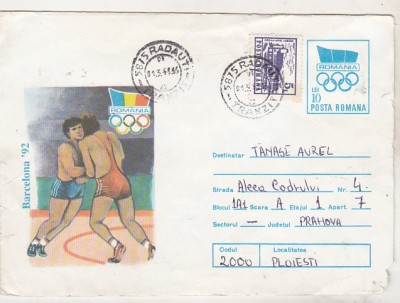 5815 RADAUTI
TRANZIT
5815 RADAUTI
TRANZIT
POSTA ROMANA
5L
ROMANIA
ROMANIA
LEI
10
POSTA ROMANA
Barcelona '92
Destinatar TĂNASE AUREL
Strada Aleea Codrului Nr. 4
Blocul 1A1 Scara A Etajul 1 Apart. 7
Sectorul — Județul PRAHOVA
Codul Localitatea
2000 PLOIESTI